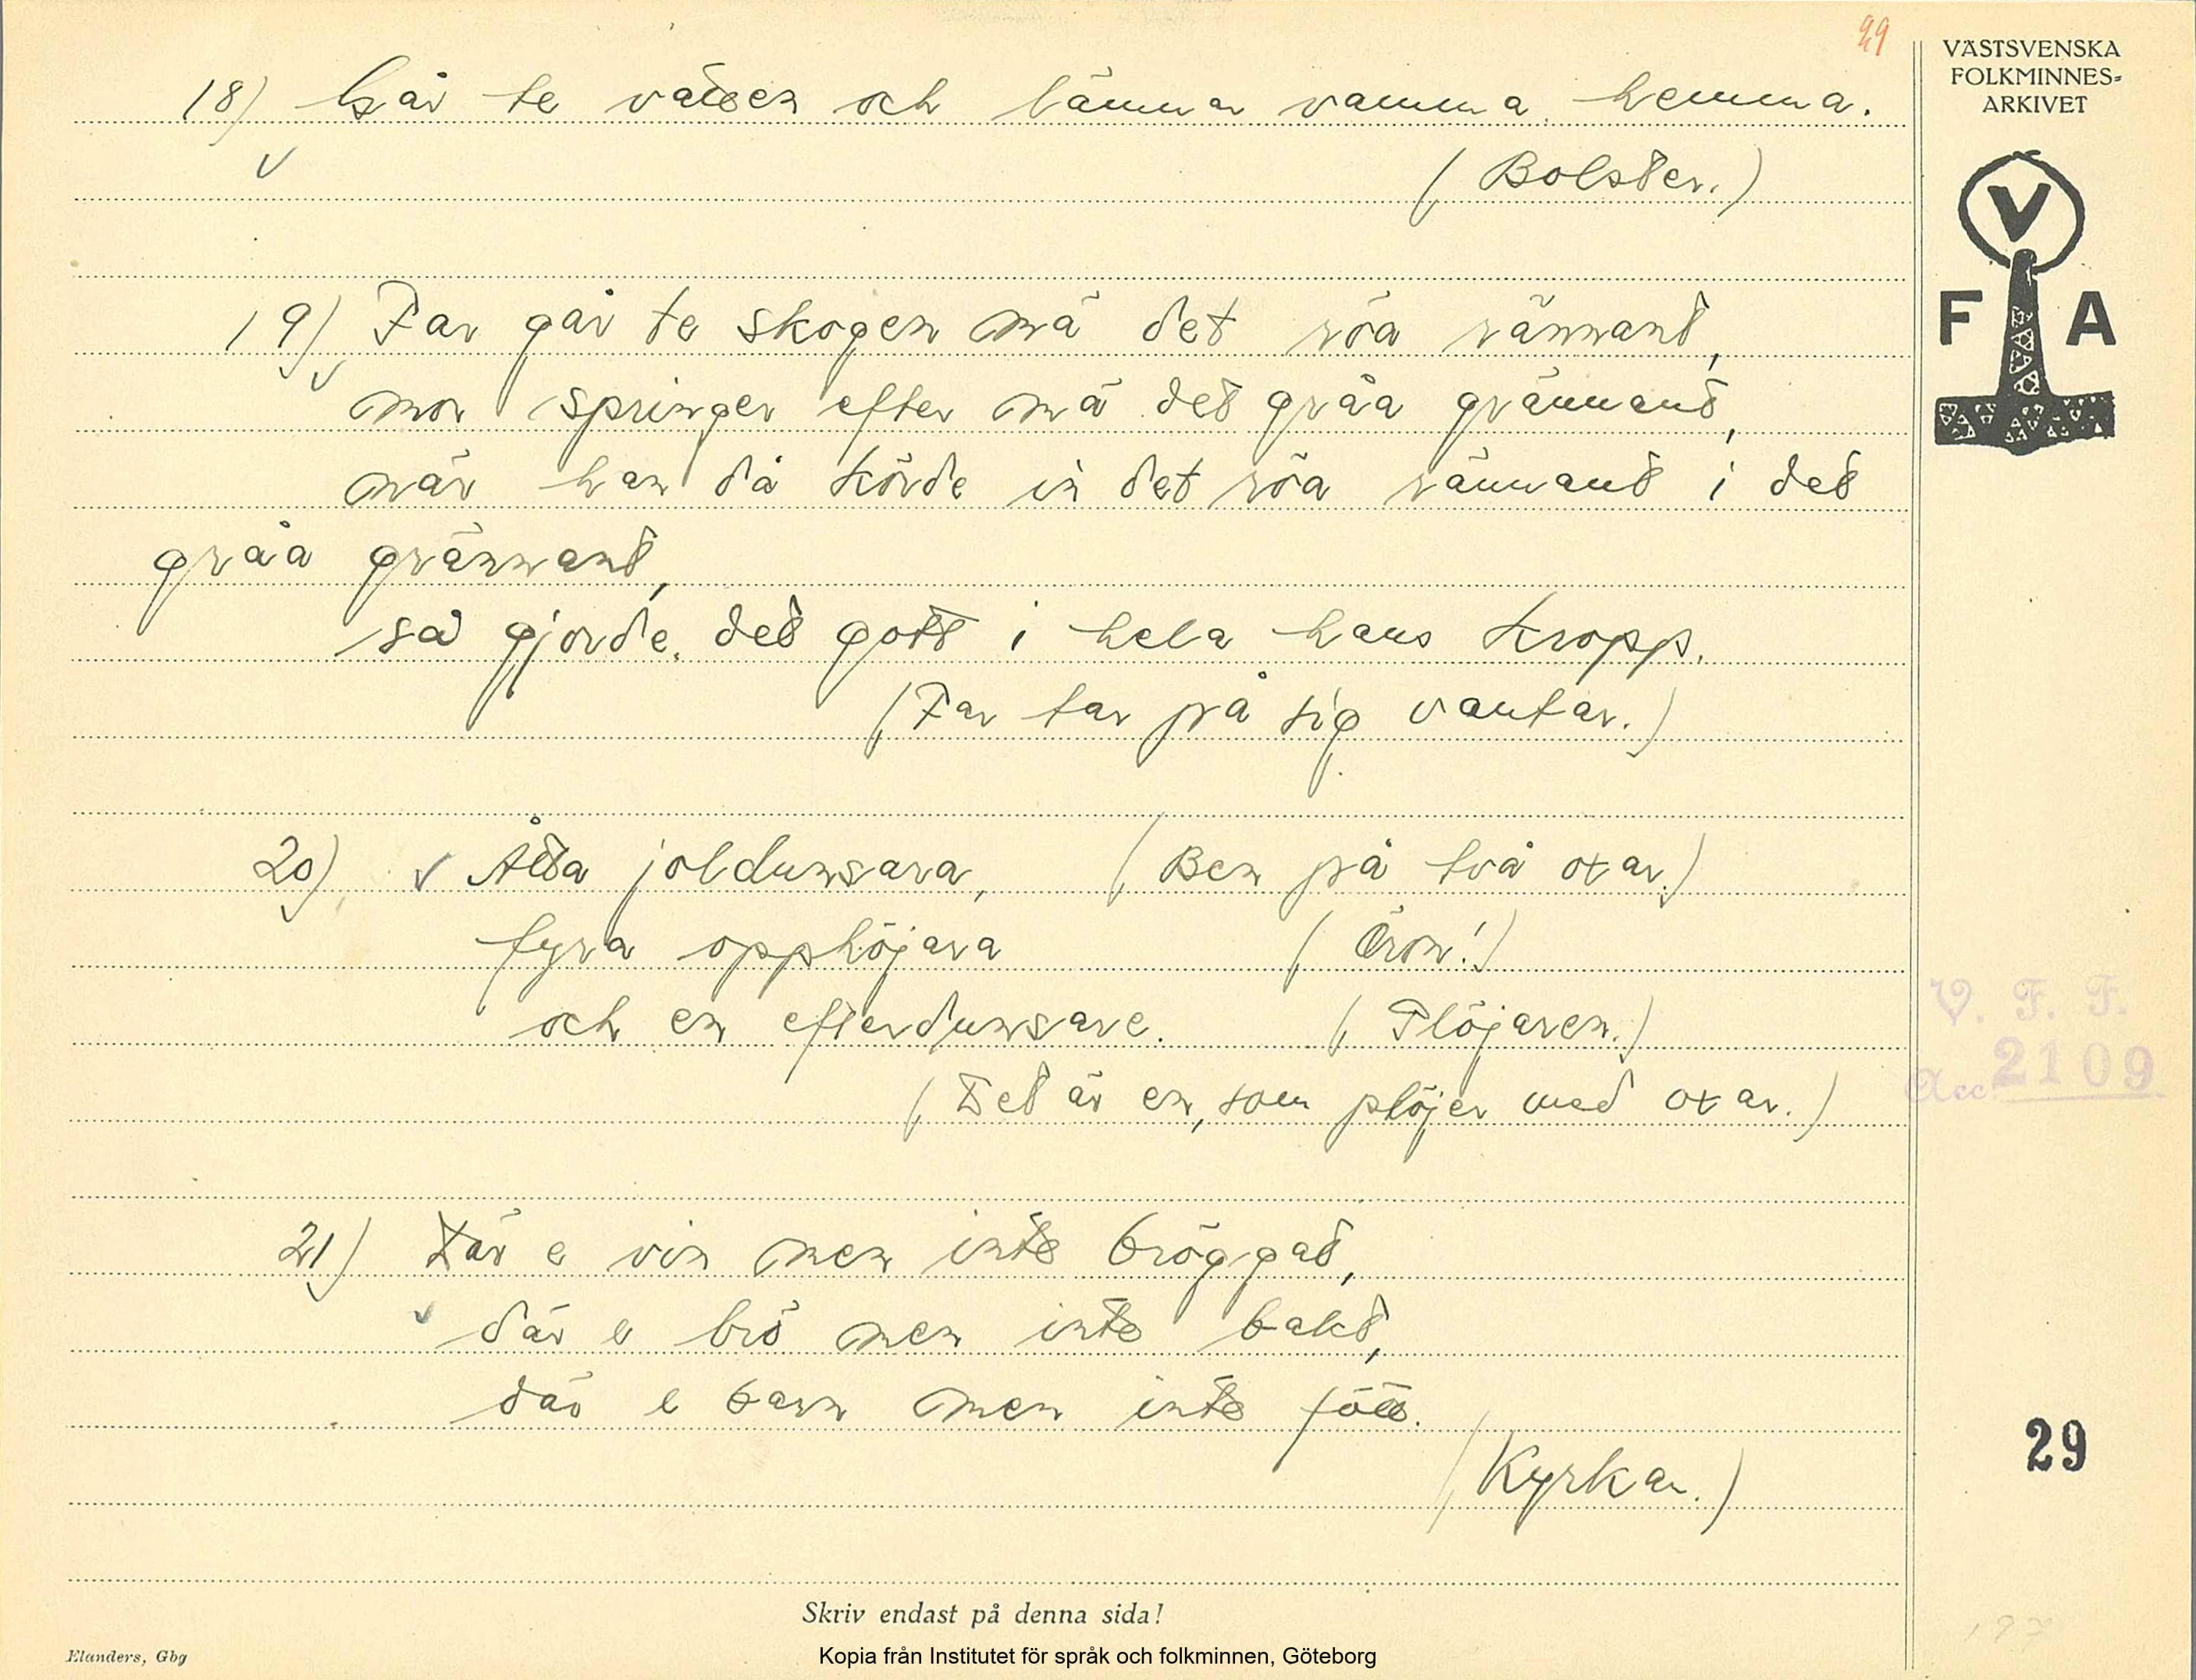 29
VÄSTSVENSKA
FOLKMINNES-
ARKIVET
V
F A
18) Går te vattnen och lämnar vamma hemma.
(Bolster.)
19) Far går te skogen mä det röa rännant,
mor springer efter mä det gråa grännant,
när han då körde in det röa rännant i det
gråa grännant,
så gjorde det gott i hela hans kropp.
(Far tar på sig vantar.)
20) Åtta joldunsara, (Ben på två oxar.)
fyra opphöjara (Öron!)
och en efterdunsare. (Plöjaren.)
(Det är en, som plöjer med oxar.)
V. F. F.
Acc. 2109
21) Där e vin men inte bröggat,
där e brö men inte bakt,
där e barn men inte fött.
(Kyrkan.)
29
Skriv endast på denna sida!
Elanders, Gbg
Kopia från Institutet för språk och folkminnen, Göteborg